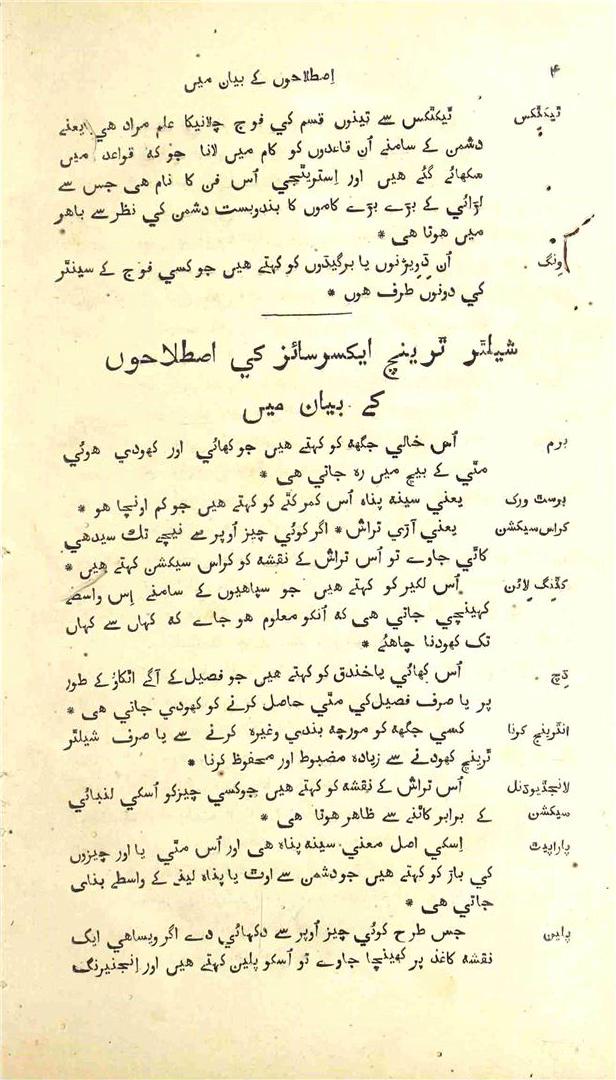 ۴
اِصطلاحوں کے بیان میں
ٹیکٹکس ٹیکٹکس سے تینوں قسم کي فوج چلانیکا علم مراد هی یعنے
دشمن کے سامنے اُن قاعدوں کو کام میں لانا جو که قواعد میں
سکھائے گئے هیں اور اِسٹریٹجي اُس فن کا نام هی جس سے
لڑائي کے بڑے بڑے کاموں کا بندوبست دشمن کي نظر سے باهر
میں هوتا هی *
وِنگ اُن ڈِویژنوں یا برگیڈوں کو کہتے هیں جو کسي فوج کے سینٹر
کي دونوں طرف هوں *
شیلٹر ٹرینچ ایکسرسائز کي اصطلاحوں
کے بیان میں
برم اُس خالي جگهه کو کہتے هیں جو کھائي اور کھودي هوئي
مٹي کے بیچ میں رہ جاتي هی *
برسٹ ورک یعني سینه پناہ اُس کمر کٹے کو کہتے هیں جو کم اونچا هو *
کراس سیکشن یعني آڑي تراش * اگر کوئي چیز اُوپر سے نیچے تک سیدهي
کاٹي جاوے تو اُس تراش کے نقشه کو کراس سیکشن کہتے هیں *
کٹِنگ لائن اُس لکیر کو کہتے هیں جو سپاهیوں کے سامنے اِس واسطے
کهینچي جاتي هی که اُنکو معلوم هو جاے که کہاں سے کہاں
تک کھودنا چاهئے *
ڈِچ اُس کھائي یا خندق کو کہتے هیں جو فصیل کے آگے اٹکاؤ کے طور
پر یا صرف فصیل کي مٹي حاصل کرنے کو کھودي جاتي هی *
انٹرینچ کرنا کسي جگهه کو مورچه بندي وغیرہ کرنے سے یا صرف شیلٹر
ٹرینچ کھودنے سے زیادہ مضبوط اور محفوظ کرنا *
لانجٹیوڈنل اُس تراش کے نقشه کو کہتے هیں جو کسي چیز کو اُسکي لنبائي
سیکشن کے برابر کاٹنے سے ظاهر هوتا هی *
پاراپیٹ اِسکي اصل معني سینه پناہ هی اور اُس مٹي یا اور چیزوں
کي باڑ کو کہتے هیں جو دشمن سے اوٹ یا پناہ لینے کے واسطے بنائي
جاتي هی *
پلین جس طرح کوئي چیز اُوپر سے دکھائي دے اگر ویساهي ایک
نقشه کاغذ پر کھینچا جاوے تو اُسکو پلین کہتے هیں اور اِنجنیرنگ